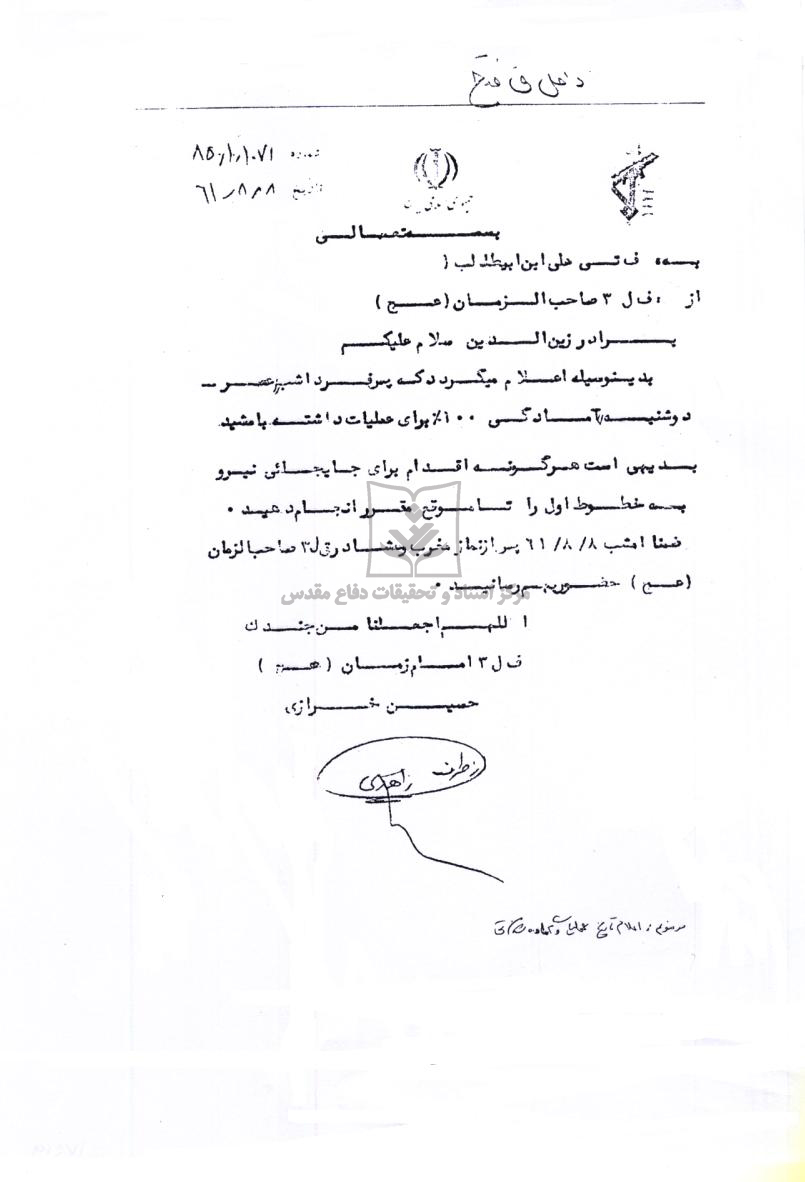 داخلی ق فتح
شماره ۸۵/۱/۱۰۷۱
تاریخ ۶۱/۸/۸
جمهوری اسلامی ایران
بسمه تعالی
به: ف تی علی ابن ابیطالب (
از : ف ل ۳ صاحب الزمان (عج)
برادر زین الدین سلام علیکم
بدینوسیله اعلام میگردد که پس فردا شب
دوشنبه آمادگی ۱۰۰٪ برای عملیات داشته باشید
بدیهی است هرگونه اقدام برای جابجائی نیرو
به خطوط اول را تا موقع مقرر انجام دهید .
ضمنا امشب ۸/ ۸/ ۶۱ پس از نماز مغرب وعشاء در ق ل ۳ صاحب الزمان
(عج) حضور بهم رسانید .
مرکز اسناد و تحقیقات دفاع مقدس
اللهم اجعلنا من جندك
ف ل ۳ امام زمان (عج)
حسین خرازی
از طرف زاهدی
موضوع : اعلام تاریخ عملیات و